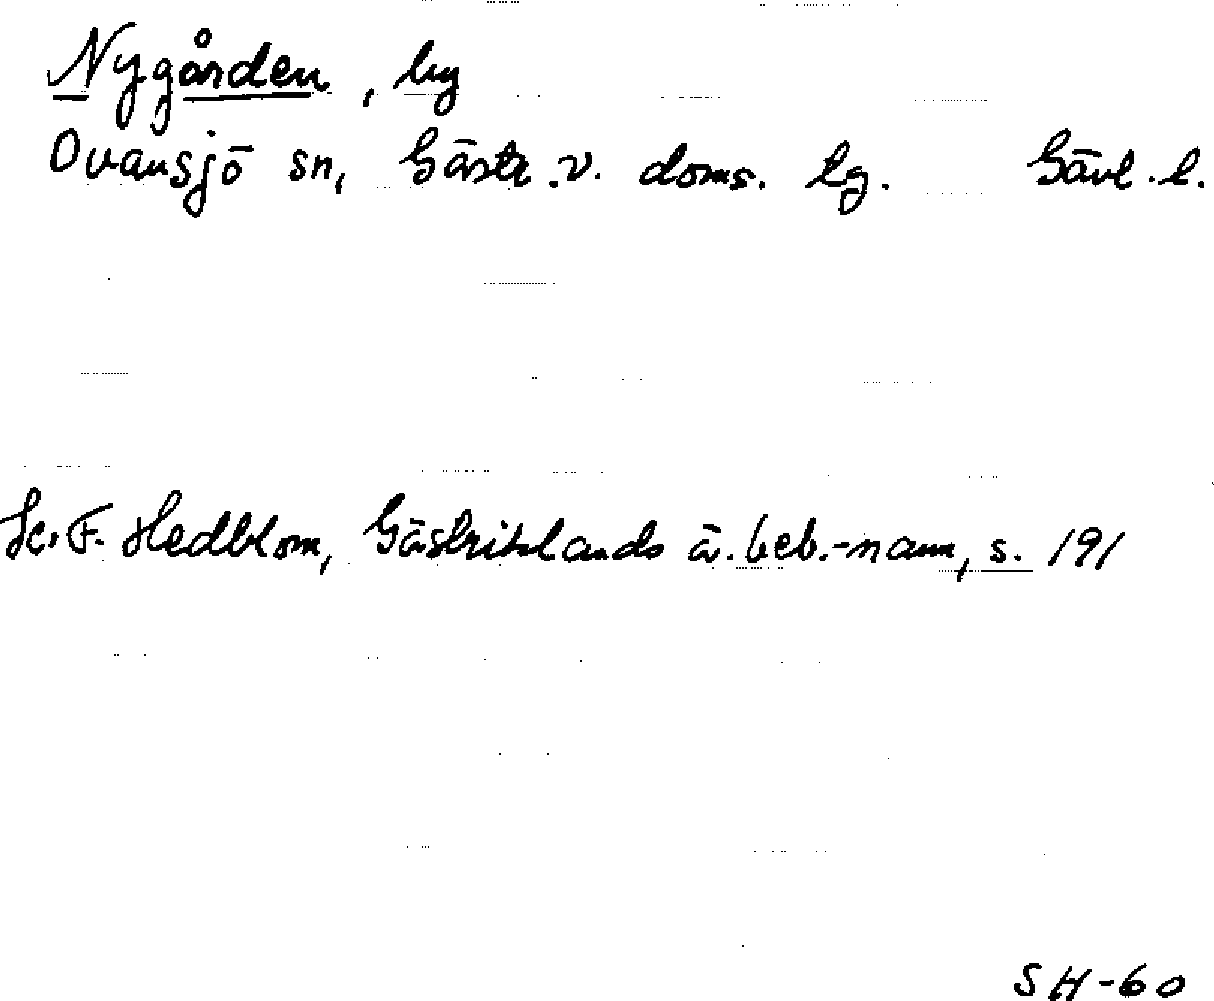 Nygården, by
Ovansjö sn, Gästr.v. doms. tg. Gävl.l.
Se F. Hedblom, Gästriklands ä. beb.-namn, s. 191
SH-60